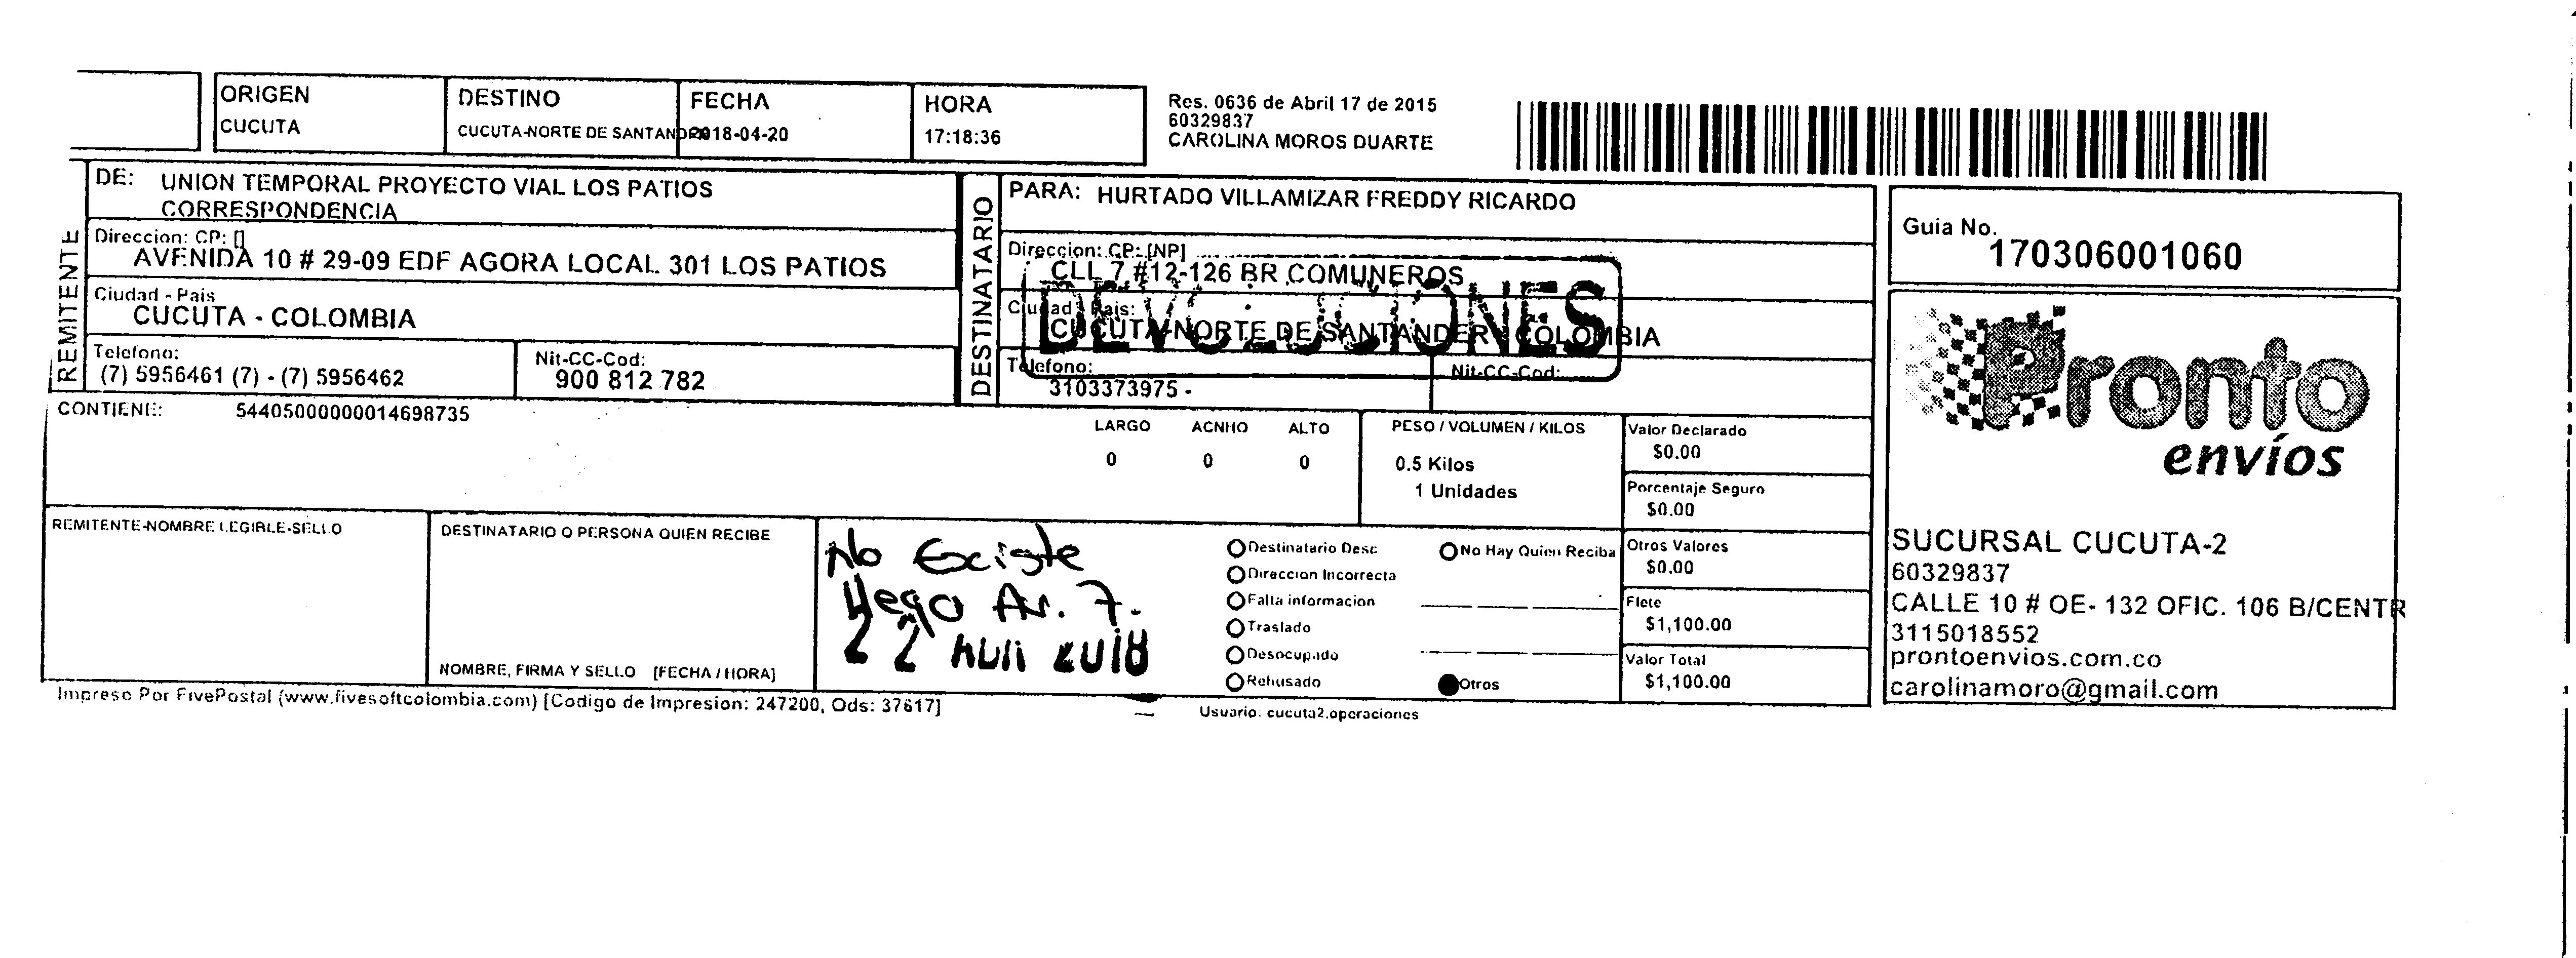 ORIGEN
CUCUTA
DESTINO
CUCUTA-NORTE DE SANTANDER
FECHA
2018-04-20
HORA
17:18:36
Res. 0636 de Abril 17 de 2015
60329837
CAROLINA MOROS DUARTE
REMITENTE
DE: UNION TEMPORAL PROYECTO VIAL LOS PATIOS
CORRESPONDENCIA
Direccion: CP: []
AVENIDA 10 # 29-09 EDF AGORA LOCAL 301 LOS PATIOS
Ciudad - Pais
CUCUTA - COLOMBIA
Telefono:
(7) 5956461 (7) - (7) 5956462
Nit-CC-Cod:
900 812 782
DESTINATARIO
PARA: HURTADO VILLAMIZAR FREDDY RICARDO
Direccion: CP: [NP]
CLL 7 #12-126 BR COMUNEROS
Ciudad - Pais:
CUCUTA-NORTE DE SANTANDER - COLOMBIA
Telefono:
3103373975 -
Nit-CC-Cod:
Guia No.
170306001060
CONTIENE: 54405000000014698735
LARGO ACNHO ALTO
0 0 0
PESO / VOLUMEN / KILOS
0.5 Kilos
1 Unidades
Valor Declarado
$0.00
Porcentaje Seguro
$0.00
Otros Valores
$0.00
Flete
$1,100.00
Valor Total
$1,100.00
REMITENTE-NOMBRE LEGIBLE-SELLO
DESTINATARIO O PERSONA QUIEN RECIBE
NOMBRE, FIRMA Y SELLO [FECHA / HORA]
No Existe
llego Av. 7.
Destinatario Desc
Direccion Incorrecta
Falta informacion
Traslado
Desocupado
Rehusado
No Hay Quien Reciba
Otros
Pronto
envíos
SUCURSAL CUCUTA-2
60329837
CALLE 10 # OE- 132 OFIC. 106 B/CENTR
3115018552
prontoenvios.com.co
carolinamoro@gmail.com
Impreso Por FivePostal (www.fivesoftcolombia.com) [Codigo de Impresion: 247200, Ods: 37617]
Usuario: cucuta2.operaciones